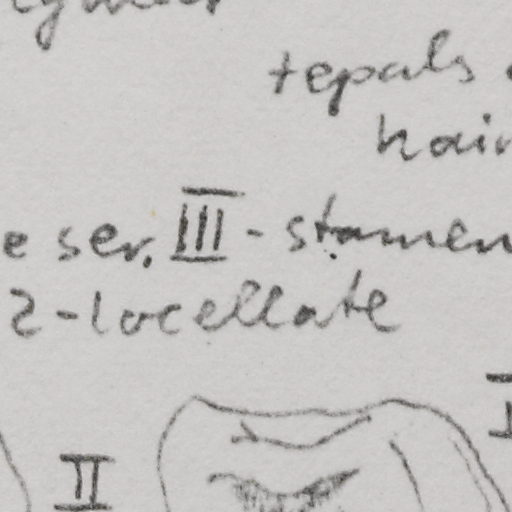 tepals
hair
e ser. III - stamen
2-locellate
II